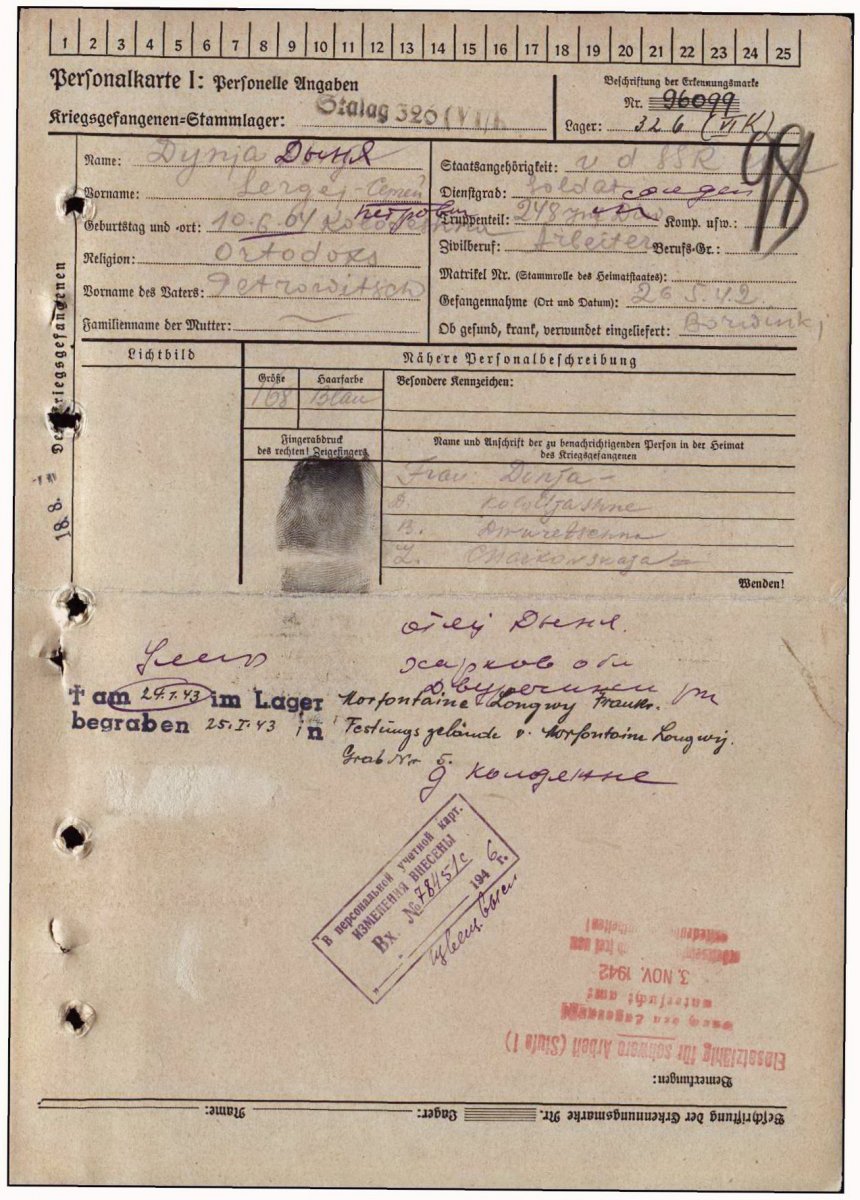 1 2 3 4 5 6 7 8 9 10 11 12 13 14 15 16 17 18 19 20 21 22 23 24 25
Personalkarte I: Personelle Angaben
Kriegsgefangenen-Stammlager: Stalag 326 (VI/K
Beschriftung der Erkennungsmarke
Nr. 96099
Lager: 326 (VI K)
98
Des Kriegsgefangenen
18.8.
Name: Dynja Дыня
Vorname: Sergej - Семен
Петрович
Geburtstag und -ort: 10.6.04
Religion: Ortodoks
Vorname des Vaters: Petrowitsch
Familienname der Mutter:
Staatsangehörigkeit: U d SSR
Dienstgrad: Soldat солдат
Truppenteil: 248 Komp. usw.:
Zivilberuf: Arbeiter Berufs-Gr.:
Matrikel Nr. (Stammrolle des Heimatstaates):
Gefangennahme (Ort und Datum): 26.5.42
Ob gesund, krank, verwundet eingeliefert:
Lichtbild
Nähere Personalbeschreibung
Größe Haarfarbe Besondere Kennzeichen:
168 Blau
Fingerabdruck
des rechten! Zeigefingers
Name und Anschrift der zu benachrichtigenden Person in der Heimat
des Kriegsgefangenen
Frau Dinja
D.
B. Dwuretschna
Z. Charkowskaja
Wenden!
отец Дыня.
Умер харков обл
† am 24.1.43 im Lager Morfontaine Longwy Frankr.
begraben 25.I.43 in Festungsgelände v. Morfontaine Longwy.
Grab Nr 5.
д
В персональной учетной карт.
ИЗМЕНЕНИЯ ВНЕСЕНЫ
Вх. № 78451с
1946 г.
3. NOV. 1942
Einsatzfähig für schwere Arbeit (Stufe 1)
Bemerkungen:
Beschriftung der Erkennungsmarke Nr. Lager: Name: